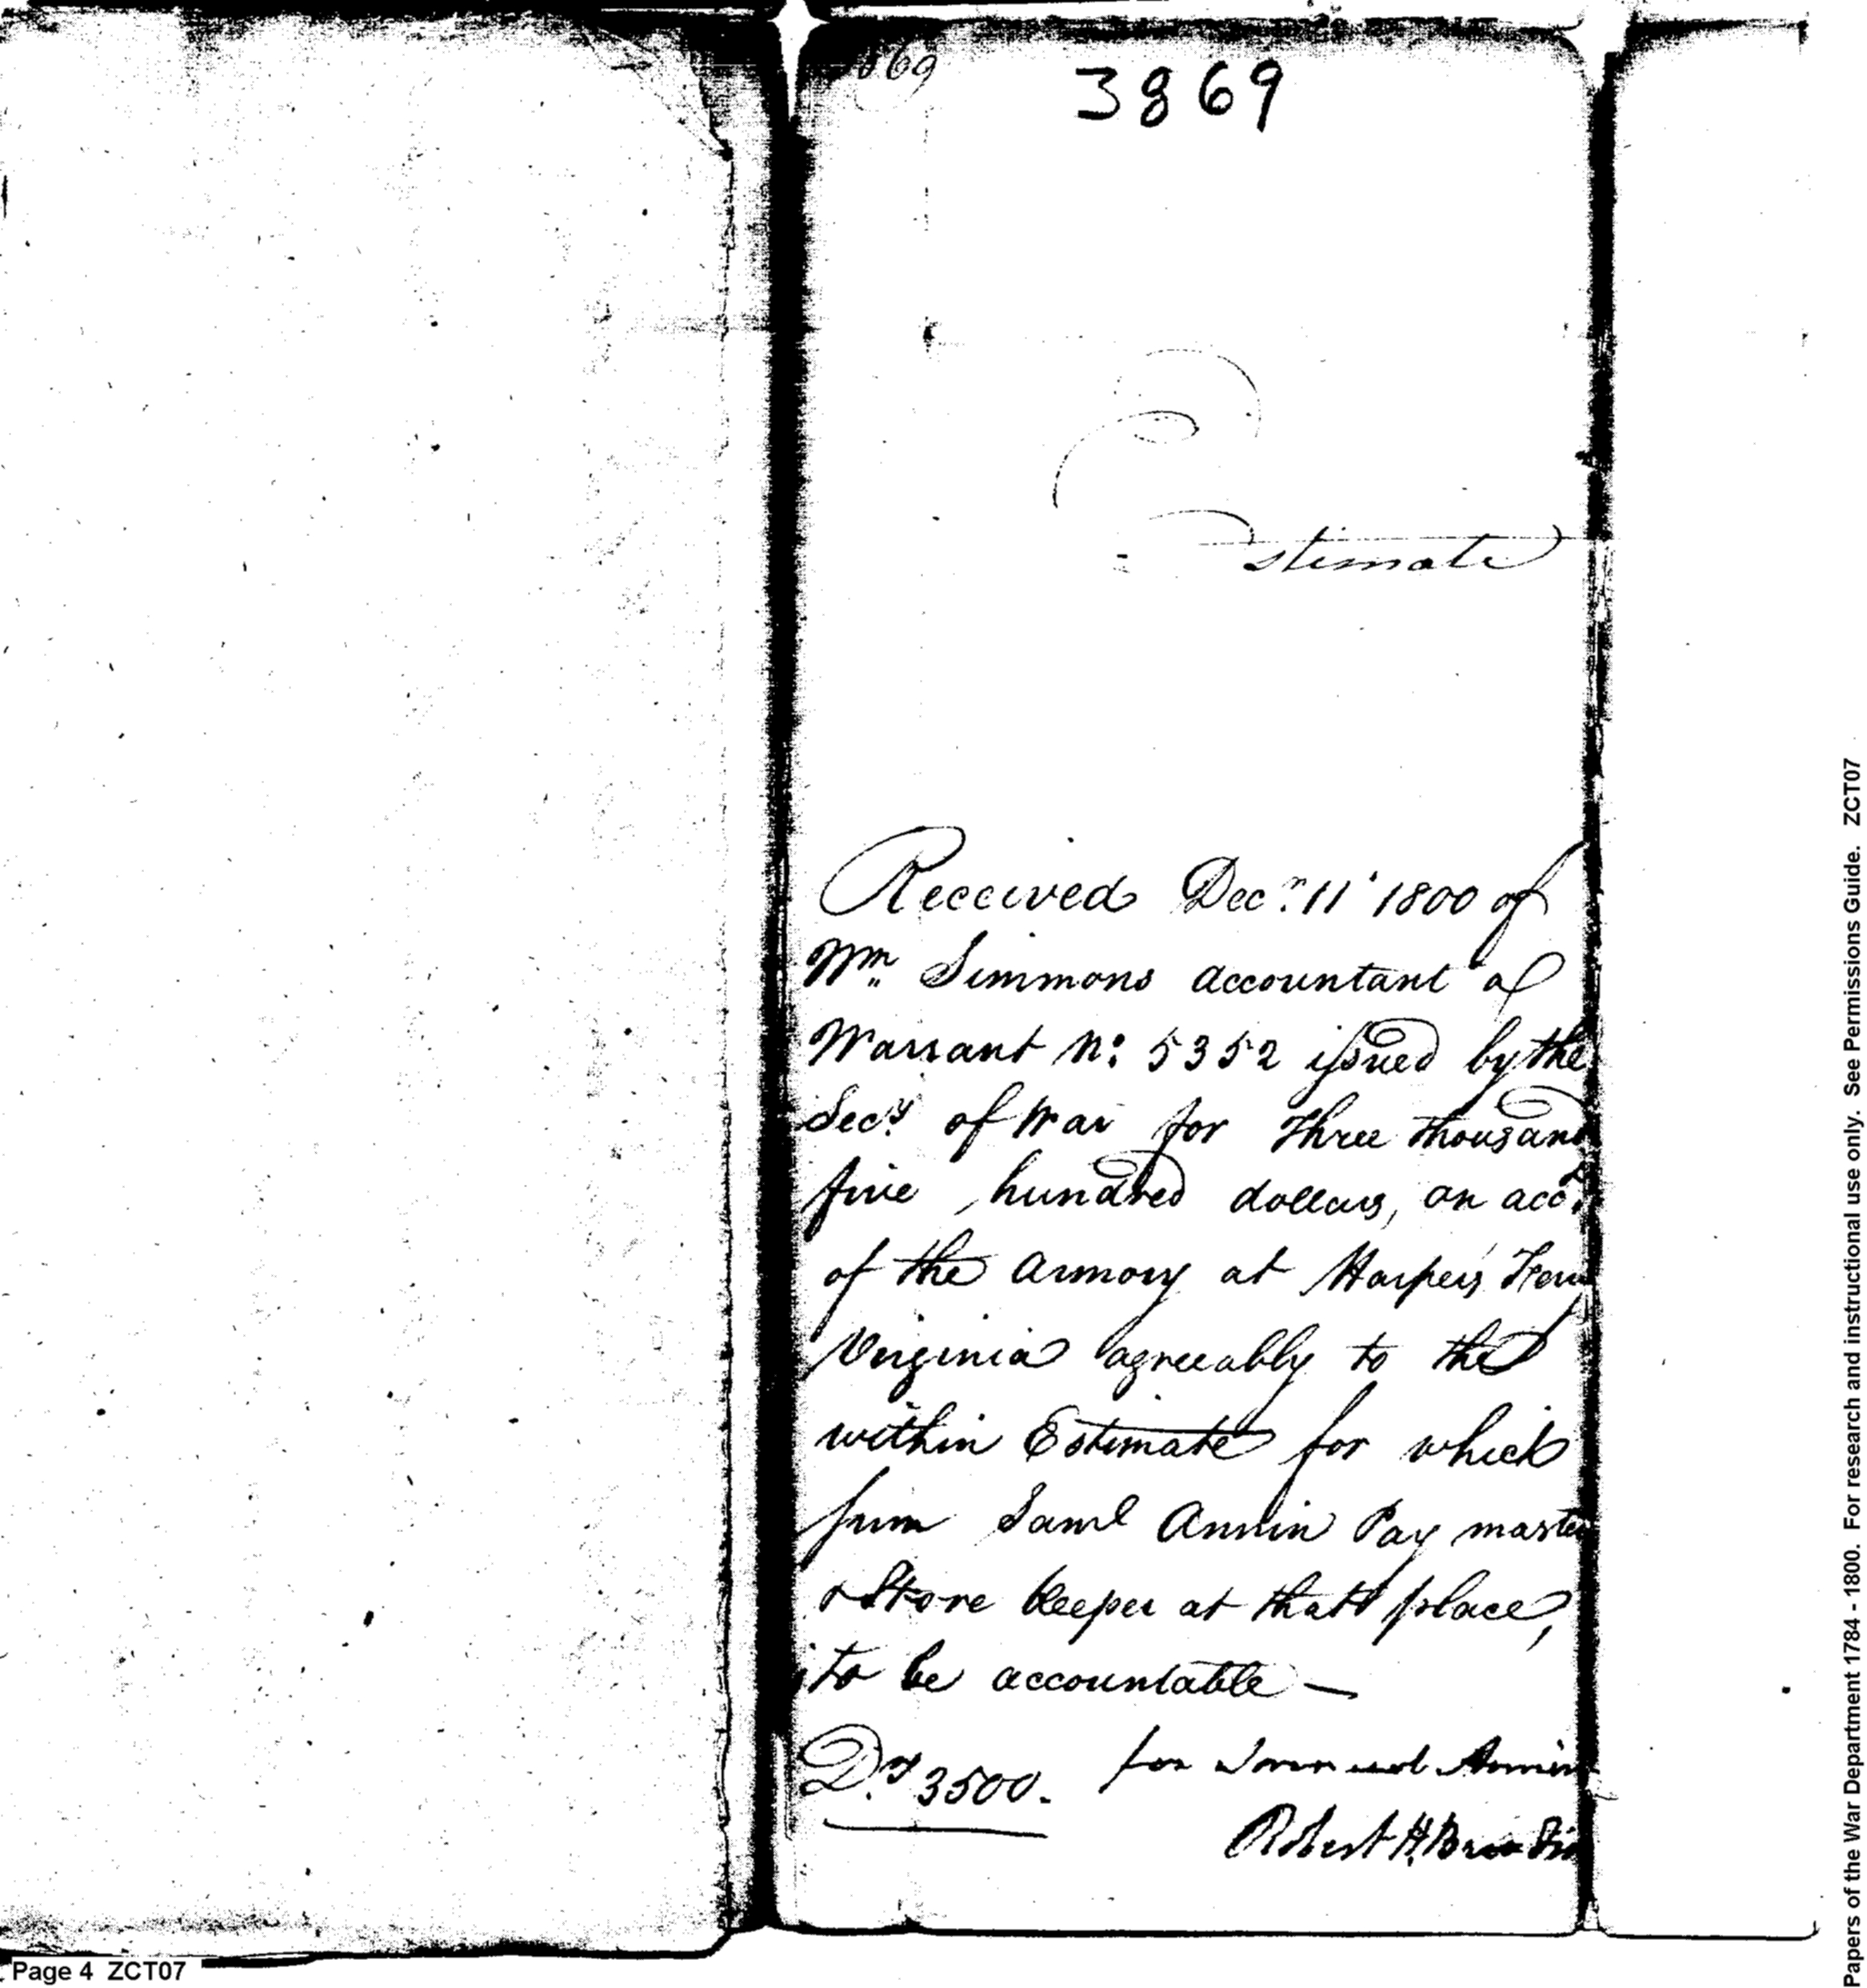 69
3869
Estimate
Received Decr. 11 1800 of
Wm Simmons accountant a
Warrant No: 5352 issued by the
Secy. of War for Three thousand
five hundred dollars, on acct.
of the armory at Harper's
Virginia agreeably to the
within Estimate for which
sum Saml Annin Pay master
& Store keeper at that place,
to be accountable —
Drs 3500. for Samuel Annin
Robert H.
Page 4 ZCT07
Papers of the War Department 1784 - 1800. For research and instructional use only. See Permissions Guide. ZCT07